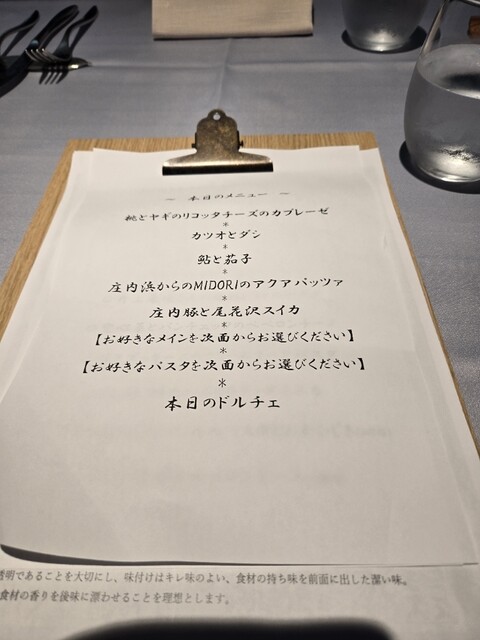 ～ 本日のメニュー ～
桃とヤギのリコッタチーズのカプレーゼ
*
カツオとダシ
*
鮎と茄子
*
庄内浜からのMIDORIのアクアパッツァ
*
庄内豚と尾花沢スイカ
*
【お好きなメインを次面からお選びください】
*
【お好きなパスタを次面からお選びください】
*
本日のドルチェ
透明であることを大切にし、味付けはキレ味のよい、食材の持ち味を前面に出した潔い味。
食材の香りを後味に漂わせることを理想とします。